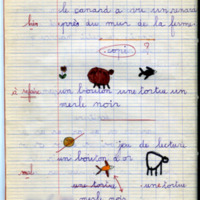 le canard a cru un renard
lu après du mur de la ferme
copié ?
un bouton une tortue un
merle noir
jeu de lecture
un bouton d'or
une tortue une tortue
merle noir